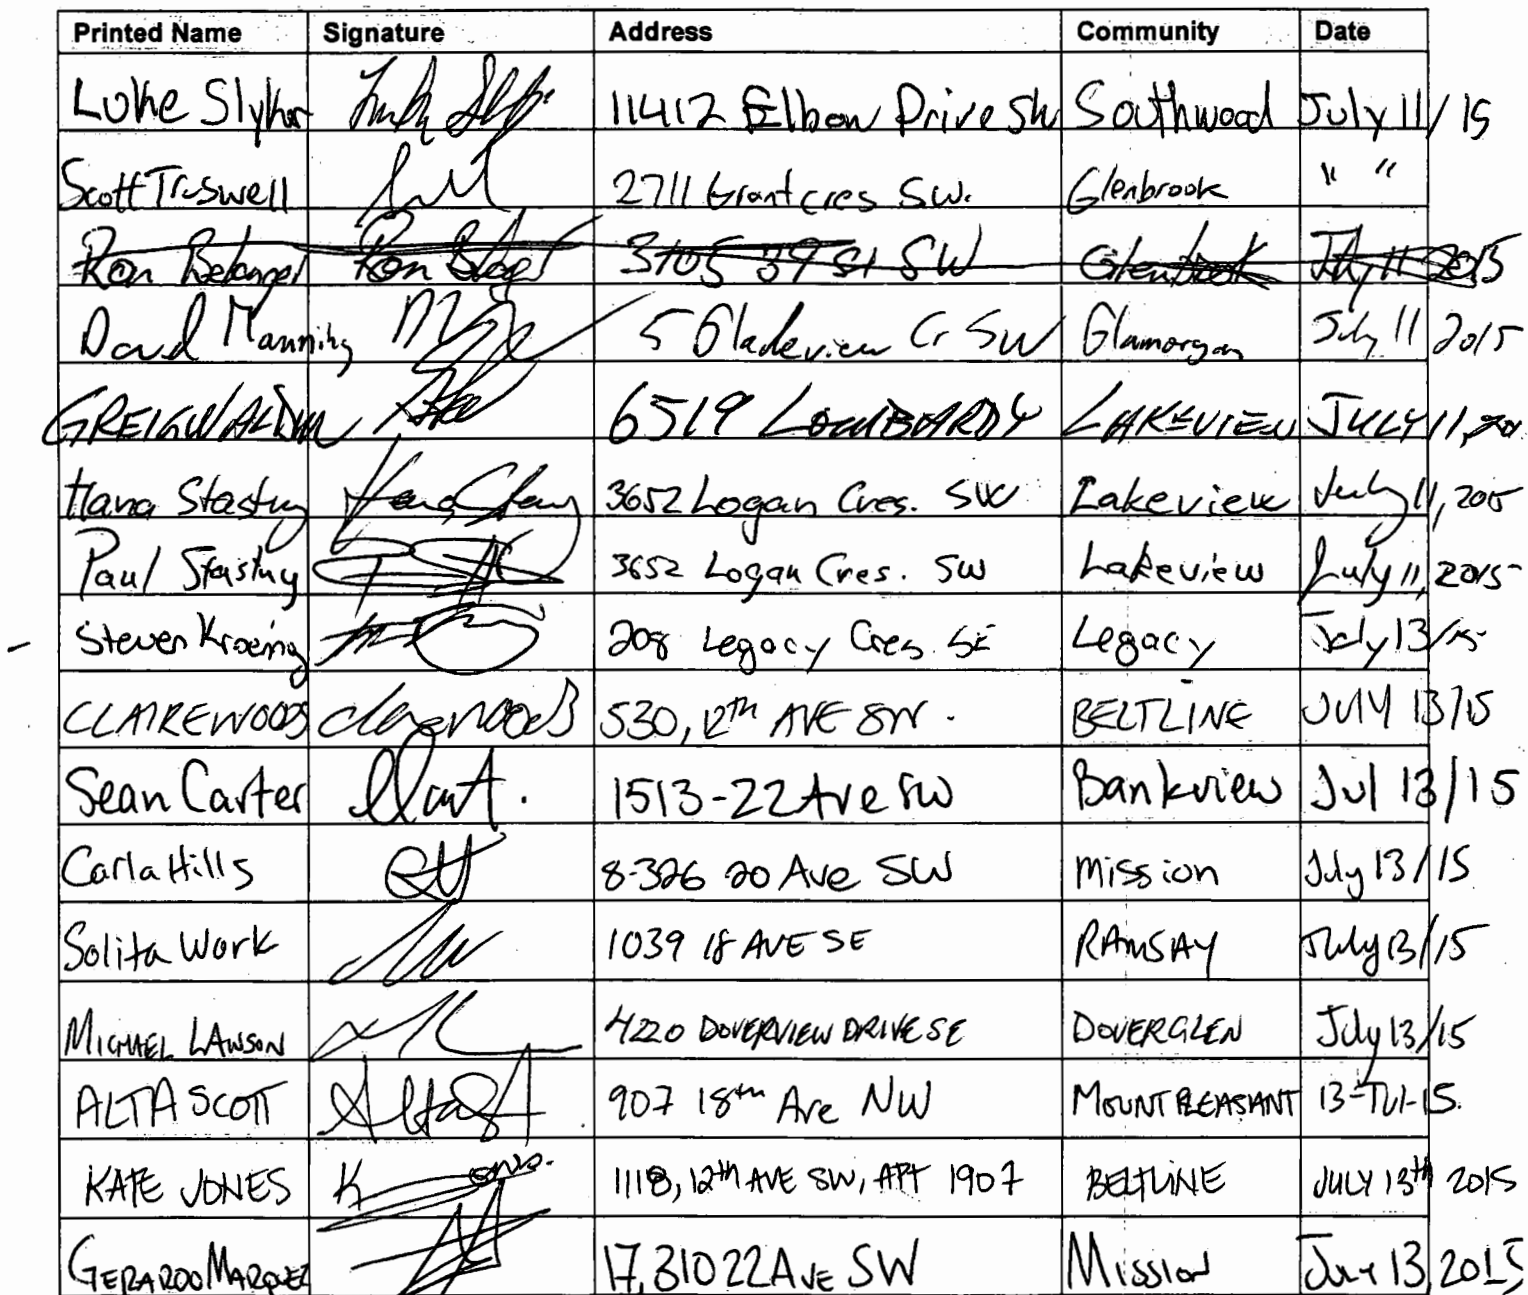 Printed Name Signature Address Community Date
Luke 11412 Elbow Drive SW Southwood July 11/15
Scott Truswell 2711 Grant cres SW. Glenbrook " "
Ron Belanger Ron 3105 39 St SW Glenbrook July 11 2015
David Manning 5 Gladeview Cr SW Glamorgan July 11 2015
GREIG 6519 LOMBARDY LAKEVIEW JULY 11,
Hana Stastny 3652 Logan Cres. SW Lakeview July 11, 2015
Paul Stastny 3652 Logan Cres. SW Lakeview July 11, 2015
Steven 208 Legacy Cres. SE Legacy July 13/15
CLAIRE WOODS clairewoods 530, 12th AVE SW. BELTLINE JULY 13/15
Sean Carter 1513-22 Ave SW Bankview Jul 13/15
Carla Hills 8-326 20 Ave SW Mission July 13/15
Solita Work 1039 18 AVE SE RAMSAY July 13/15
MICHAEL LAWSON 4220 DOVERVIEW DRIVE SE DOVERGLEN July 13/15
ALTA SCOTT 907 18th Ave NW MOUNT PLEASANT 13-JUL-15.
KATE JONES 1118, 12th AVE SW, APT 1907 BELTLINE JULY 13th 2015
GERARDO MARQUEZ 17, 310 22 AVE SW Mission 13, 2015